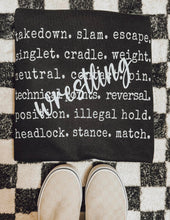 takedown. slam. escape.
singlet. cradle. weight.
neutral. pin.
wrestling
technical points. reversal.
position. illegal hold.
headlock. stance. match.